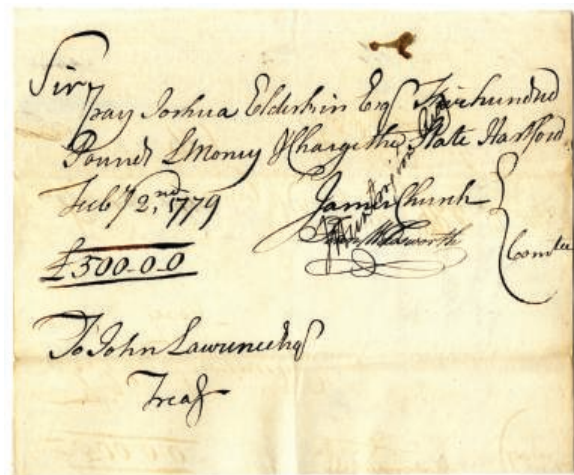 Sir
Pay Joshua Elderkin Esqr Five hundred
Pounds LMoney & Charge the State Hartford
Feby 2,nd 1779
James Church
Wadsworth
Comtee
£500-0-0
To John Lawrence Esqr
Treasr